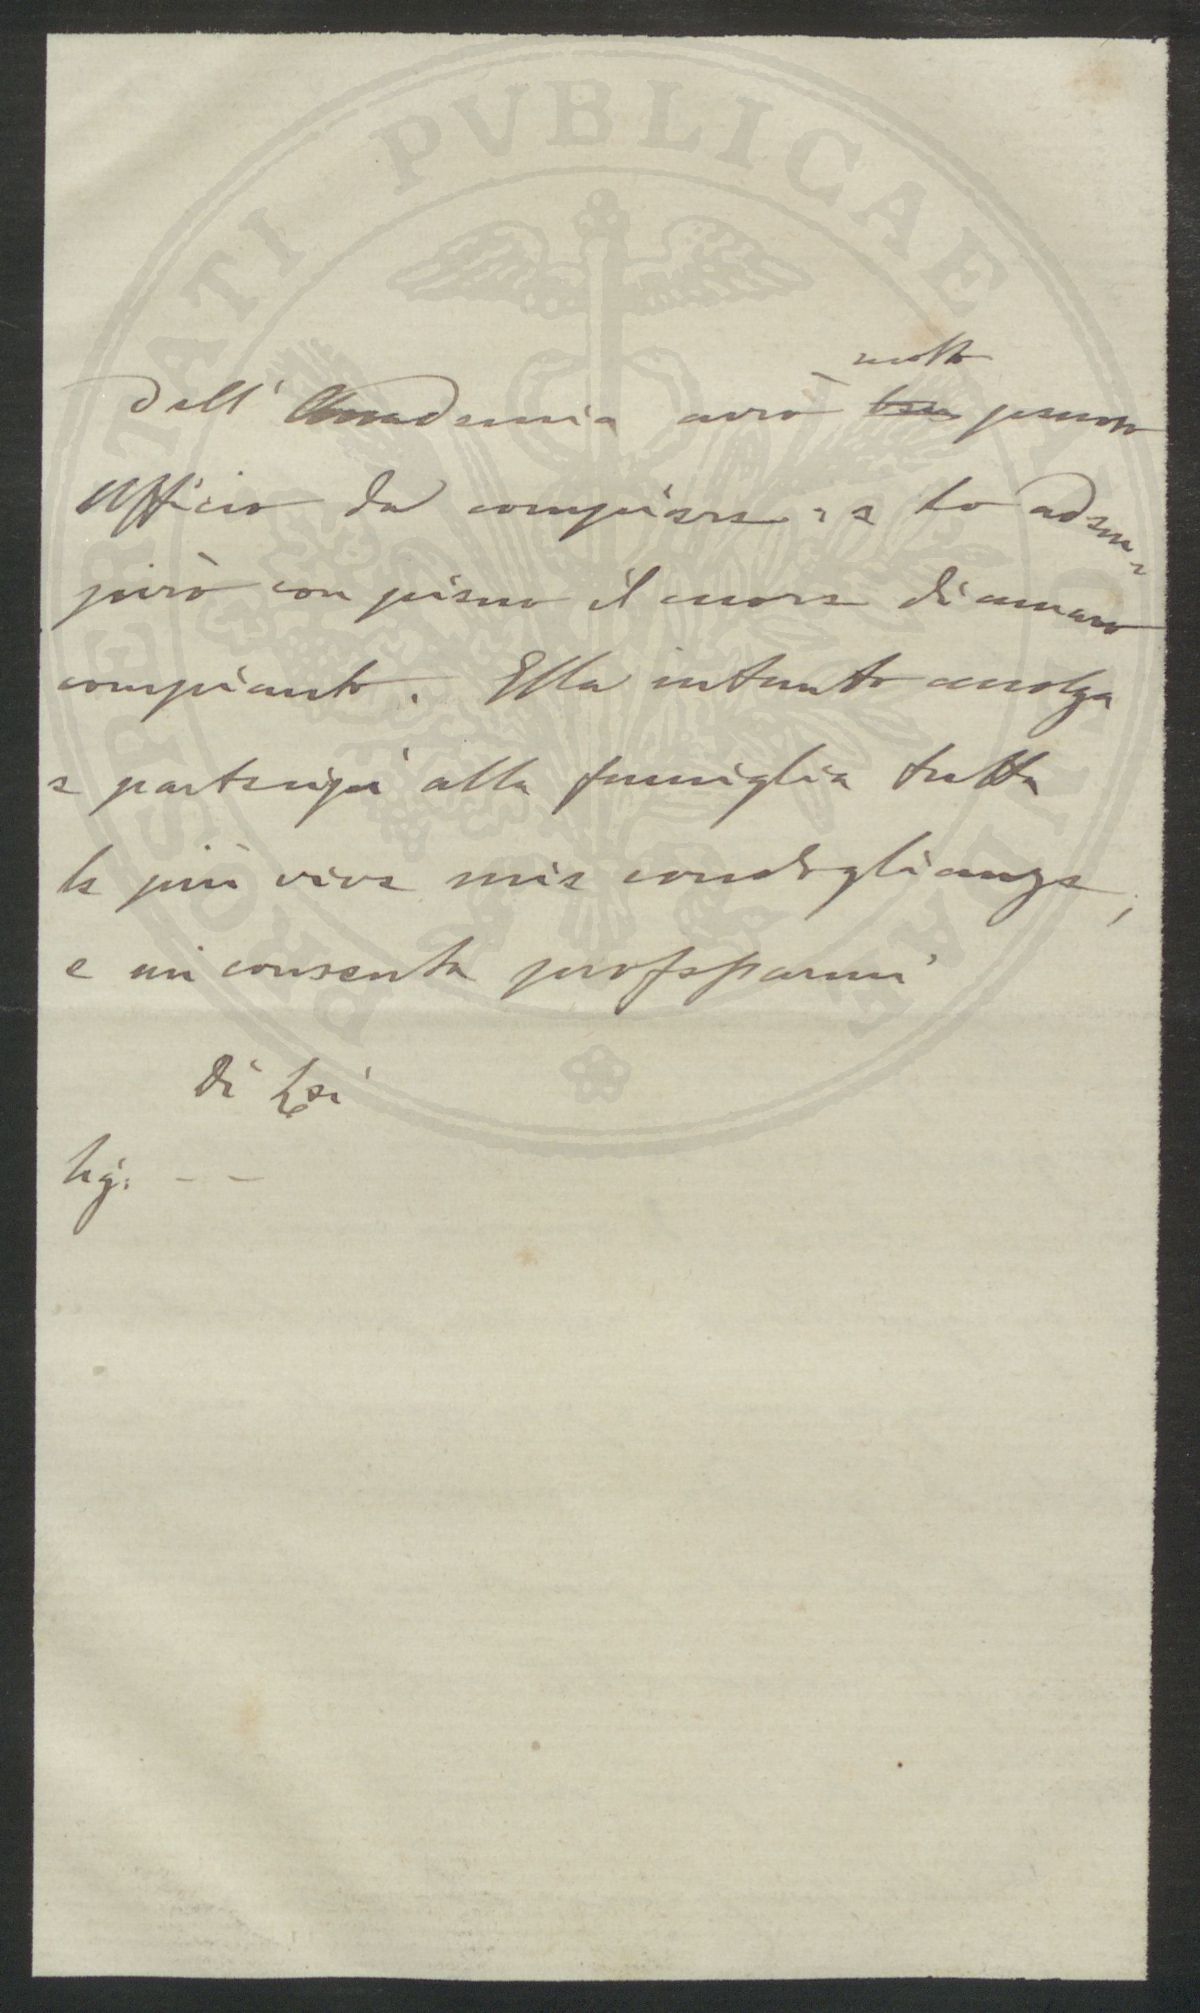 molto
dell' Accademia avrò ben penoso
Ufficio da compiere, e lo adem-
pirò con pieno il cuore di amaro
compianto. Ella intanto accolga
e partecipi alla famiglia tutta
le più vive mie condoglianze,
e mi consenta professarmi
Di Lei
Sig. - -
PROSPERITATI PVBLICAE